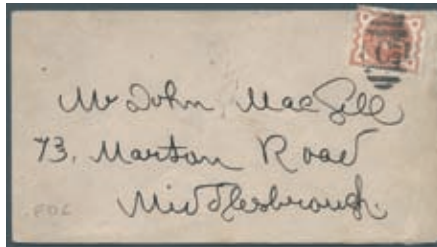 Mr John MacGill
73, Marton Road
Middlesbrough.
FDC